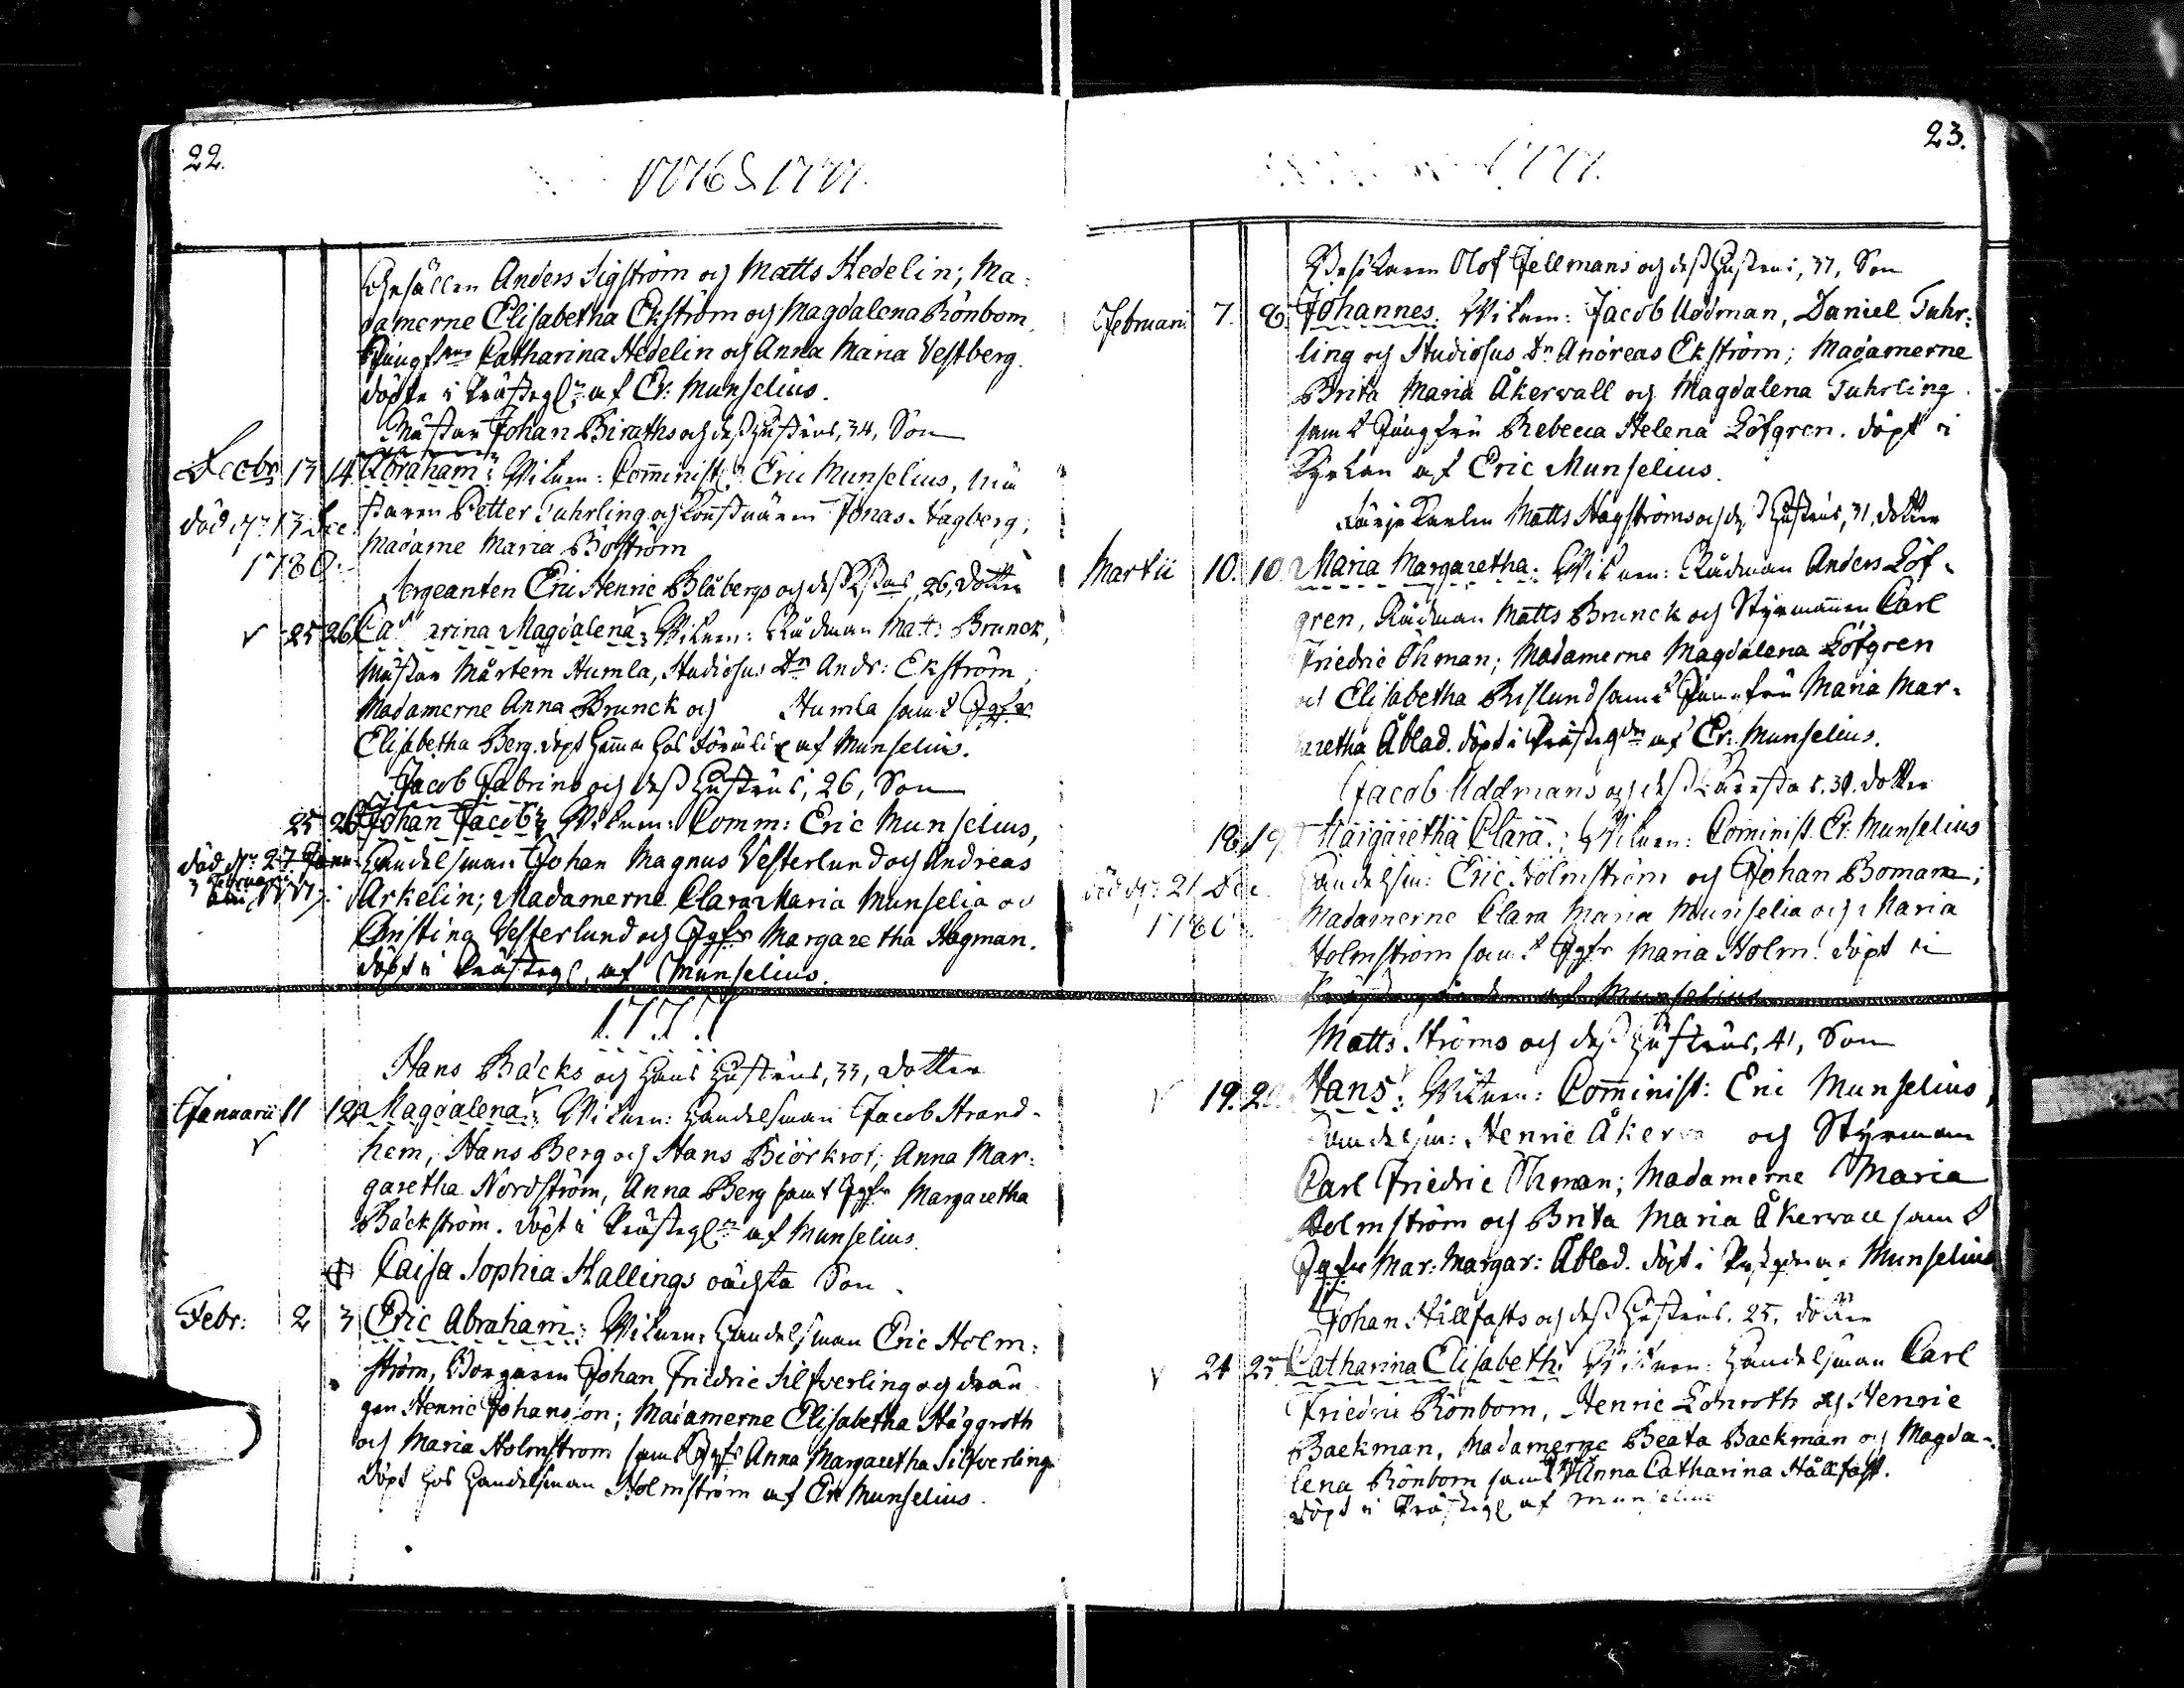 22.
1776 & 1777.
Gesällen Anders Sigström och Matts Hedelin; Ma-
damerne Elisabetha Ekström och Magdalena Rönbom,
Jungfrur Catharina Hedelin och Anna Maria Vestberg.
döpte i Prästegln af Er: Munselius.
Mästar Johan Biraths och dess Hustrus, 34, Son
Decbr 13 14 Abraham; Vitnen: Comminist: Eric Munselius, Mä
död dn 13 Dec. staren Petter Tuhrling och Jonas Hagberg;
1780. Madame Maria Boström
Sergeanten Eric Henric Blåbergs och dess 26, dotter
25 26 Ca arina Magdalena; Vitnen: Rådman Matts Brunck,
Mästar Mårten Humla, Studiosus Dn Andr: Ekström,
Madamerne Anna Brunck och Humla samt Jgfr
Elisabetha Berg. döpt hemma hos af Munselius.
Jacob Fabrins och dess Hustrus, 26, Son
25 26 Johan Jacob; Vitnen: Comm: Eric Munselius,
död dn 27 Handelsman Johan Magnus Vesterlund och Andreas
Februarii 1777. Arkelin; Madamerne Clara Maria Munselia oc
Christina Vesterlund och Jgfr Margaretha Hagman.
döpt i Prästegl, af Munselius.
1777
Hans Bäcks och Hans Hustrus, 33, dotter
Januarii 11 12 Magdalena; Vitnen: Handelsman Jacob Strand-
hem, Hans Berg och Hans Biörkrot; Anna Mar-
garetha Nordström, Anna Berg samt Jgfr Margaretha
Bäckström. döpt i Prästegln af Munselius.
Caisa Sophia Hallings oächta Son
Febr: 2 3 Eric Abraham; Vitnen: Handelsman Eric Holm-
ström, Borgaren Johan Friedric Silfverling och drän
gen Henric Johansson; Madamerne Elisabetha Häggroth
och Maria Holmström samt Jgfr Anna Margaretha Silfverling
döpt hos Handelsman Holmström af Er: Munselius.
23.
1777.
Olof Fellmans och dess Hustrus, 37, Son
Februari 7. 8. Johannes. Vitnen: Jacob Uddman, Daniel Tuhr-
ling och Studiosus Dn Andreas Ekström; Madamerne
Brita Maria Åkerwall och Magdalena Tuhrling
samt Jungfru Rebecca Helena Löfgren. döpt i
Kyrkan af Eric Munselius.
Färjekarlen Matts Hagströms och dess Hustrus, 31, dotter
Martii 10. 10. Maria Margaretha; Vitnen: Rådman Anders Löf-
gren, Rådman Matts Brunck och Styrmannen Carl
Friedric Öhman; Madamerne Magdalena Löfgren
och Elisabetha samt Jungfru Maria Mar-
garetha Åblad. döpt i Prästegdn af Er: Munselius.
Jacob Uddmans och dess 30. dotter
18. 19 Margaretha Clara; Vitnen: Cominist. Er. Munselius
Handelsm: Eric Holmström och Johan Boman;
död dn 21 Dec. Madamerne Clara Maria Munselia och Maria
1780 Holmström samt Jgfr Maria Holm. döpt i
Prästegården af Munselius
Matts Ströms och dess Hustrus, 41, Son
19. 20. Hans; Vitnen: Comminist: Eric Munselius,
Handelsm: Henric och Styrman
Carl Friedric Öhman; Madamerne Maria
Holmström och Brita Maria Åkerwall samt
Jgfr Mar: Margar: Åblad. döpt i Munselius
Johan Hällfasts och dess Hustrus. 25, dotter
24 25 Catharina Elisabeth; Vitnen: Handelsman Carl
Friedric Rönbom, Henric Lönroth och Henric
Backman, Madamerne Beata Backman och Magda-
lena Rönbom samt Anna Catharina Hällfast.
döpt i Prästegl af Munselius